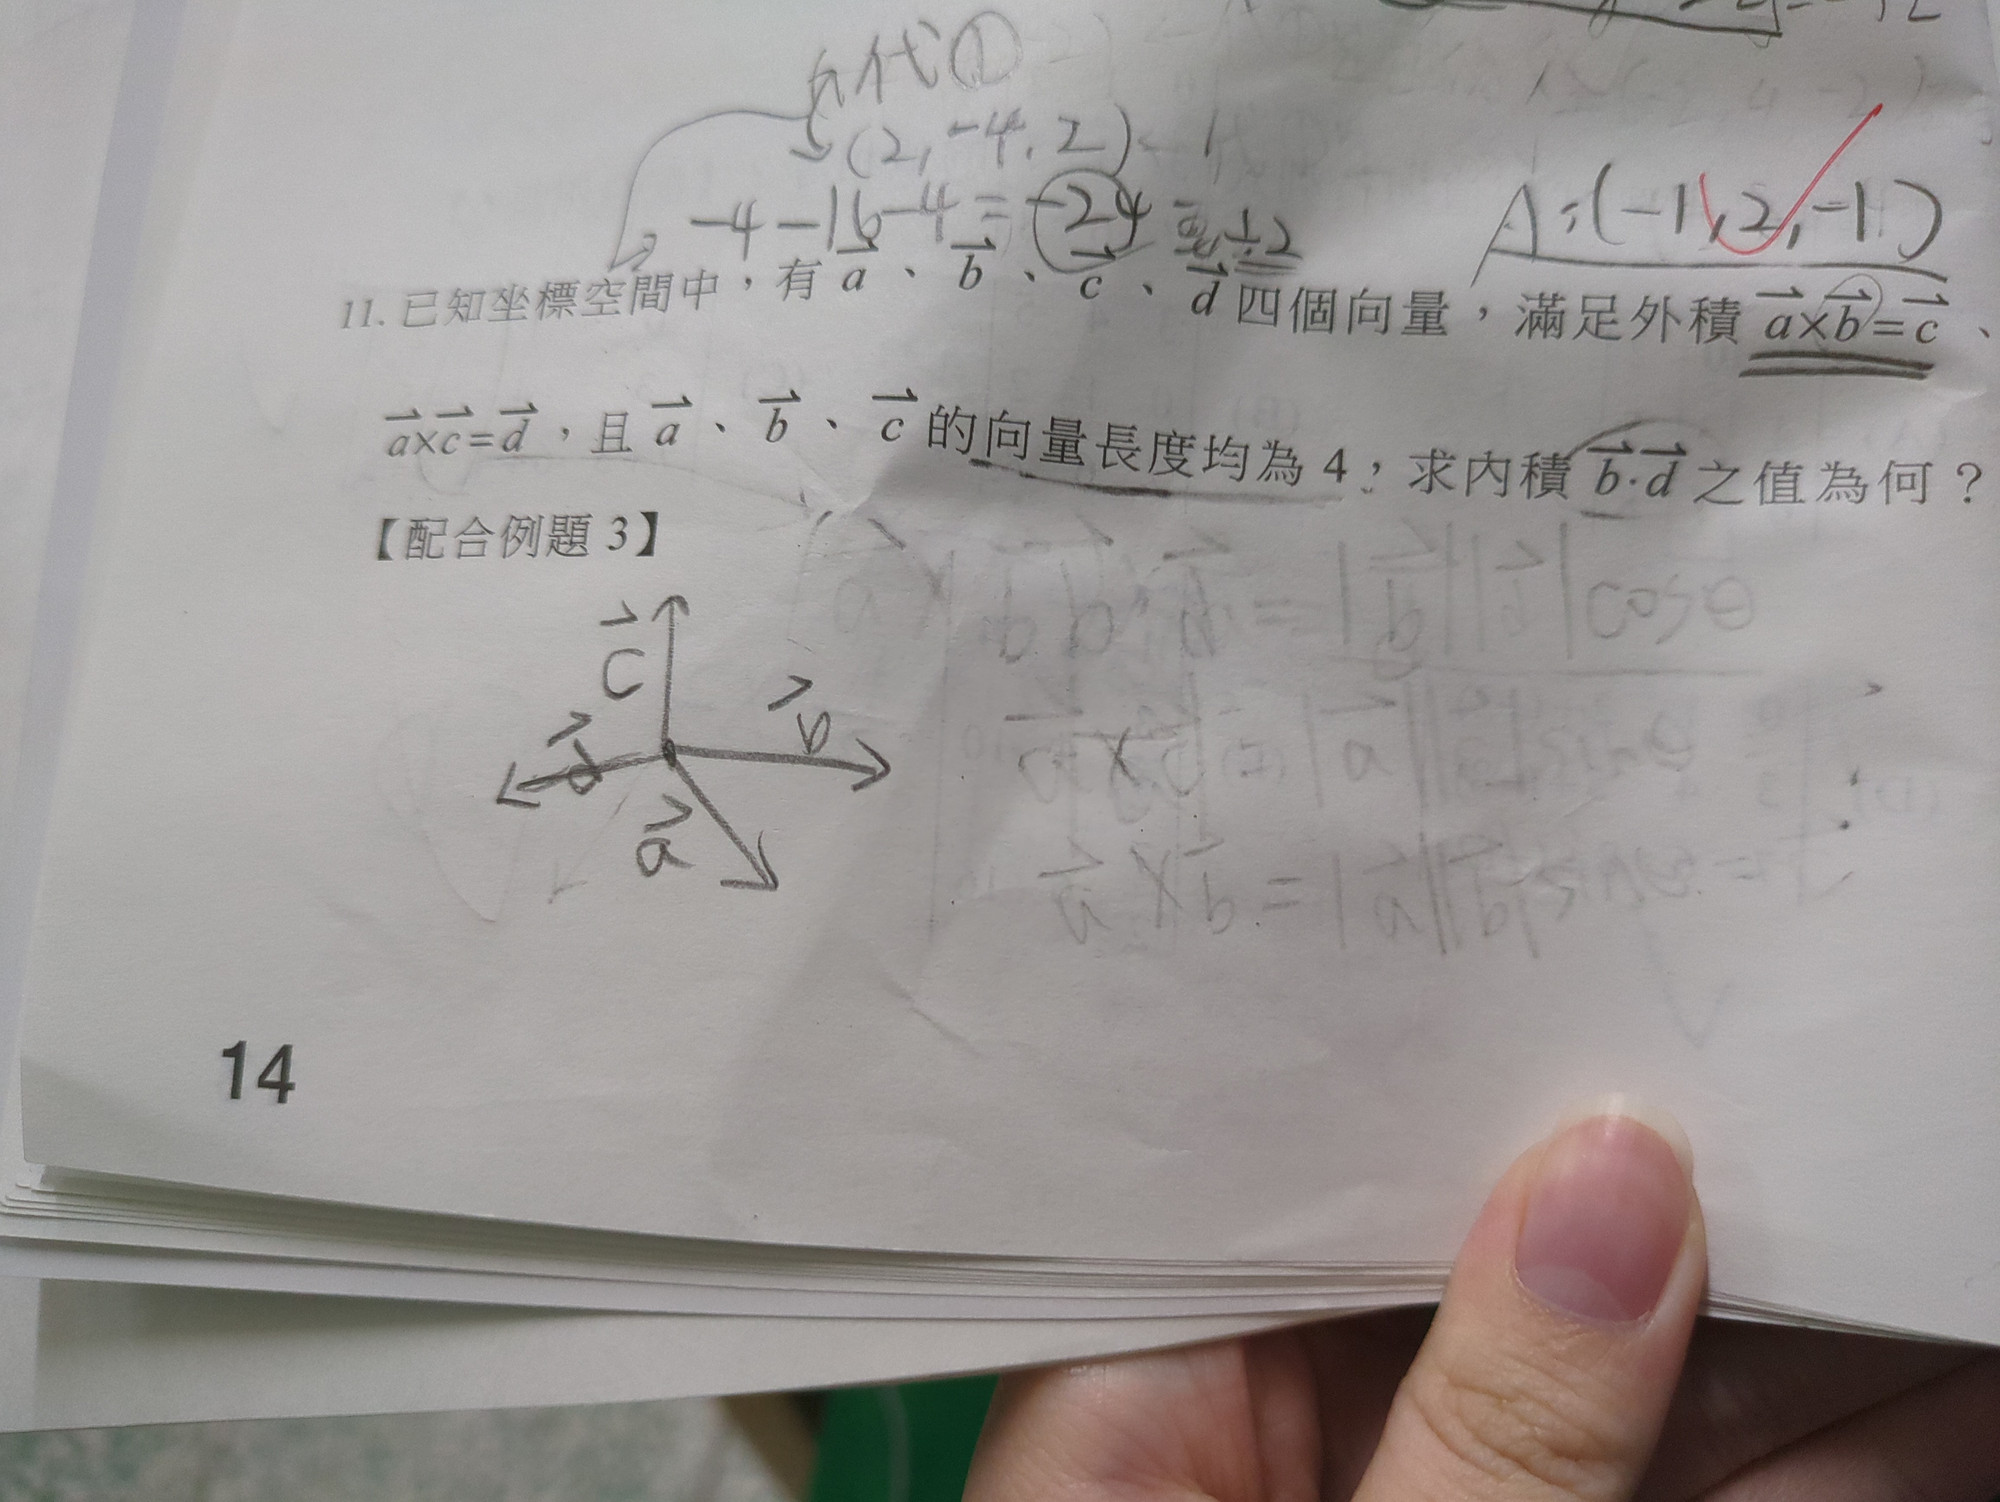 代①
(2, -4, 2)
-4-16-4=-24
÷2
A:(-1,2,-1)
11. 已知坐標空間中，有 a⃗、b⃗、c⃗、d⃗ 四個向量，滿足外積 a⃗×b⃗=c⃗、
a⃗×c⃗=d⃗，且 a⃗、b⃗、c⃗ 的向量長度均為 4，求內積 b⃗·d⃗ 之值為何？
【配合例題 3】
c⃗
b⃗
d⃗
a⃗
14